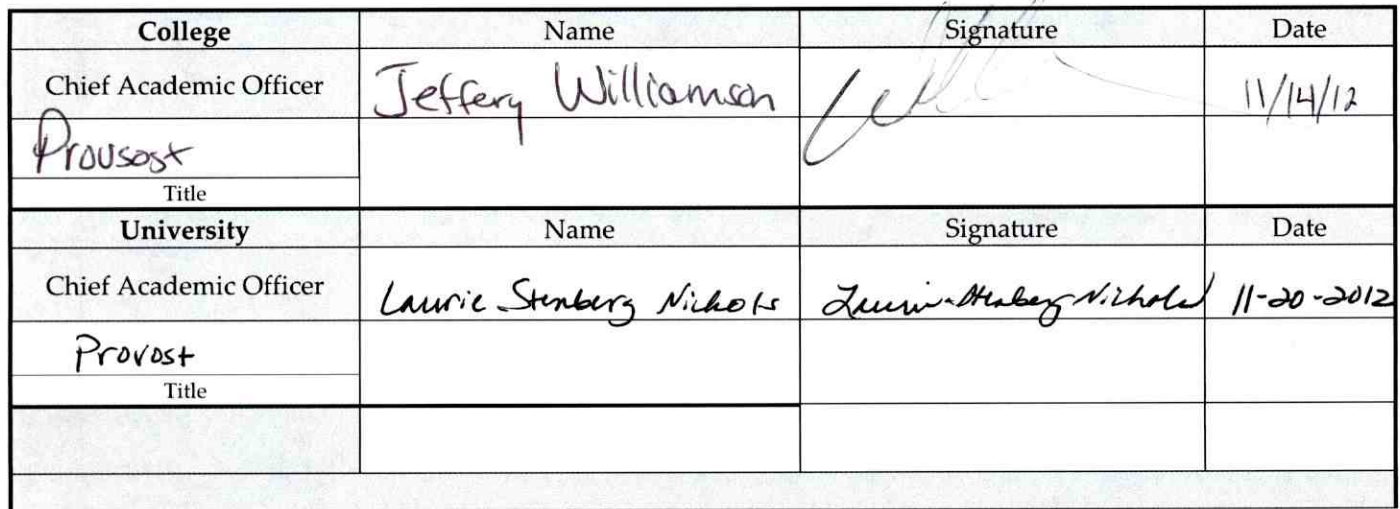 College Name Signature Date
Chief Academic Officer Jeffery Williamson 11/14/12
Prousost
Title
University Name Signature Date
Chief Academic Officer Laurie Stenberg Nichols Laurie Stenberg Nichols 11-20-2012
Provost
Title